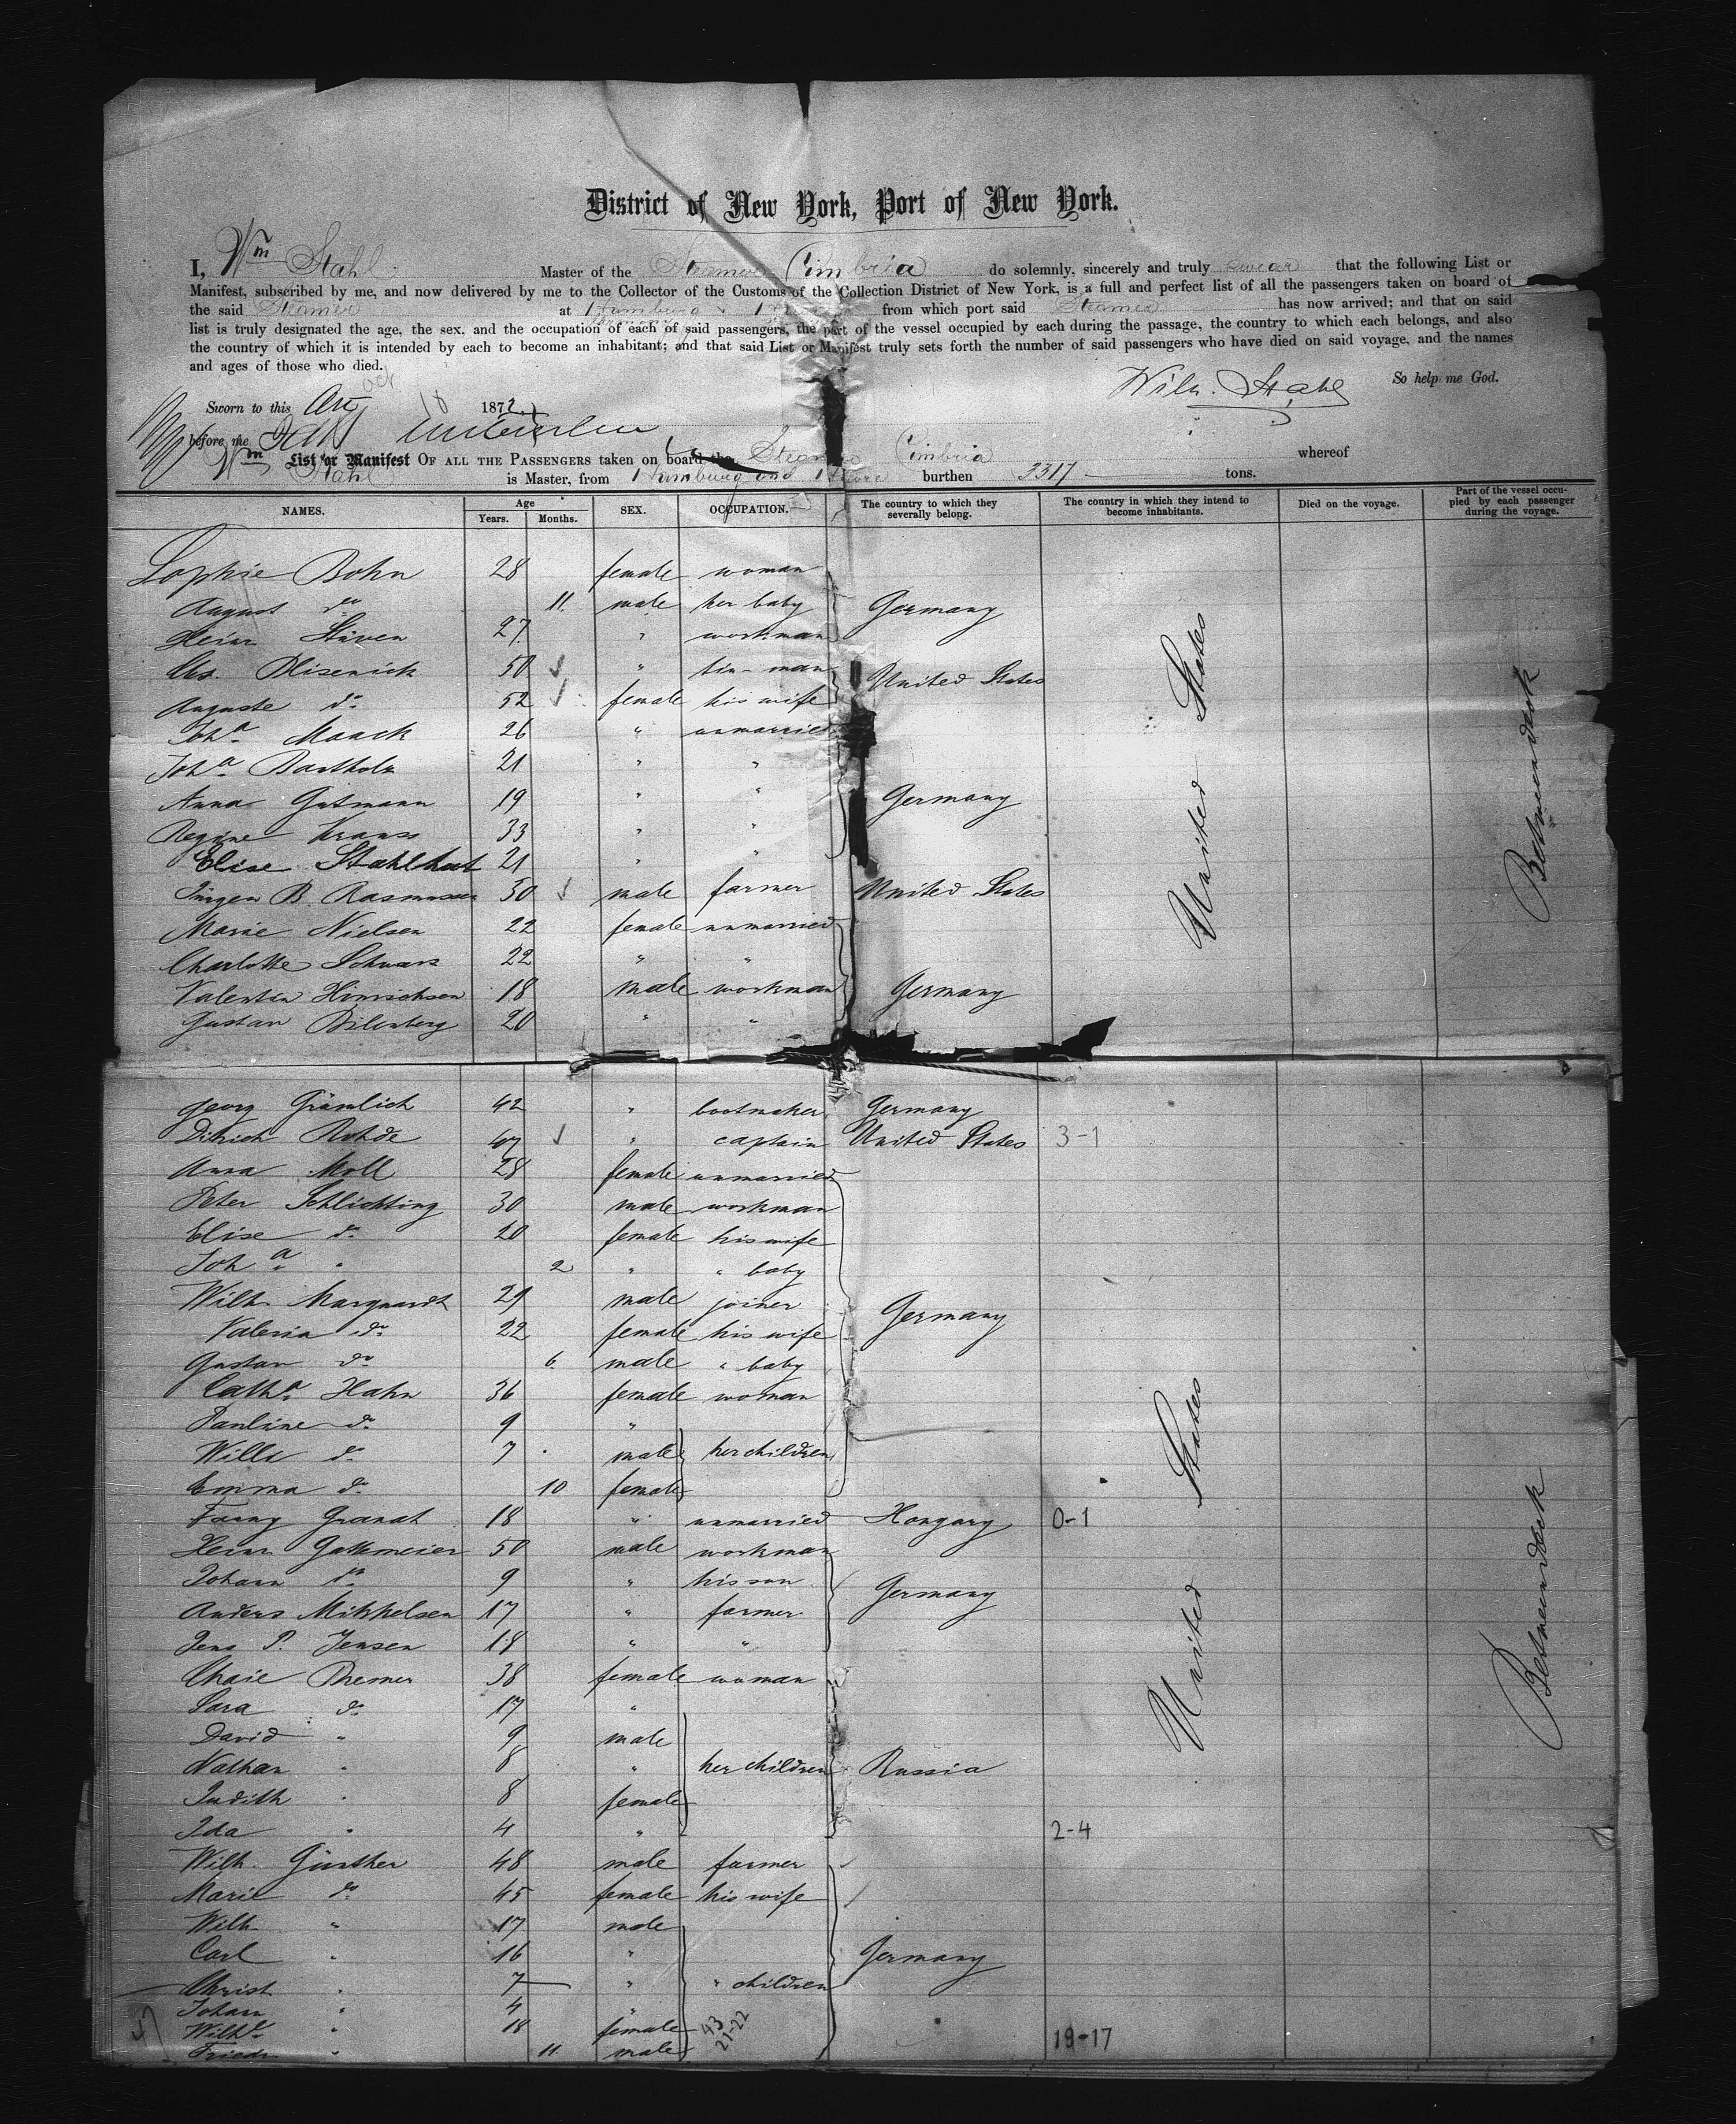 District of New York, Port of New York.
I, Wm Stahl Master of the Steamer Cimbria do solemnly, sincerely and truly swear that the following List or
Manifest, subscribed by me, and now delivered by me to the Collector of the Customs of the Collection District of New York, is a full and perfect list of all the passengers taken on board of
the said Steamer at Hamburg from which port said Steamer has now arrived; and that on said
list is truly designated the age, the sex, and the occupation of each of said passengers, the part of the vessel occupied by each during the passage, the country to which each belongs, and also
the country of which it is intended by each to become an inhabitant; and that said List or Manifest truly sets forth the number of said passengers who have died on said voyage, and the names
and ages of those who died.
Wilh. Stahl So help me God.
Sworn to this Oct 18 1872
before me
List or Manifest OF ALL THE PASSENGERS taken on board the Steamer Cimbria whereof
Wm Stahl is Master, from Hamburg and Havre burthen 3317 tons.
NAMES. Age Years. Months. SEX. OCCUPATION. The country to which they severally belong. The country in which they intend to become inhabitants. Died on the voyage. Part of the vessel occupied by each passenger during the voyage.
Sophie Bohn 28 female woman
August do 11. male her baby Germany
Heinr Stüven 27 " workman
50 " tin-man United States
Auguste do 52 female his wife
Joha Maack 26 " unmarried
Joha Bartholz 21 " "
Anna Gutmann 19 " " Germany
Regine Krauss 33 " "
Elise Stahlhut 21 " "
Jürgen B. Rasmussen 50 male farmer United States
Marie Nielsen 22 female unmarried
Charlotte Schwarz 22 " "
Valentin Hinrichsen 18 male workman Germany
Gustav Bilenberg 20 " "
United States
Betweendeck
Georg Grämlich 42 " bootmaker Germany
Ditrich Rohde 47 " captain United States 3-1
Anna Moll 28 female unmarried
Peter Schlichting 30 male workman
Elise do 20 female his wife
Joha " 2 " " baby
Wilh. Marquardt 29 male joiner Germany
Valeria do 22 female his wife
Gustav do 6. male " baby
Catha Hahn 36 female woman
Pauline do 9 "
Willi do 7 male her children
Emma do 10 female
Fanny Granat 18 " unmarried Hongary 0-1
Heinr Gattmeier 50 male workman
Johann do 9 " his son Germany
Anders Mikkelsen 17 " farmer
Jens P. Jensen 18 " "
Chaie Bremer 38 female woman
Sara do 17 "
David " 9 male
Nathan " 8 " her children Russia
Judith " 8 female
Ida " 4 " 2-4
Wilh. Günther 48 male farmer
Marie do 45 female his wife
Wilh " 17 male
Carl " 16 " Germany
Christ " 7 " " children
Johann " 4 "
Wilhe " 18 female 43 19-17
Friedr " 11 male 21-22
United States
Betweendeck